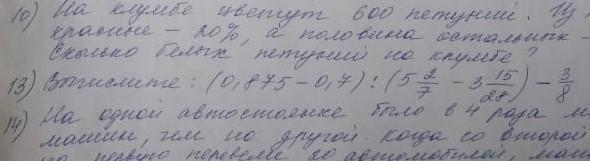 10) На клумбе цветут 600 петуний. Из
красные – 20%, а половина остальных –
Сколько белых петуний на клумбе?
13) Вычислите: (0,875 – 0,7) : (5 2/7 – 3 15/28) – 3/8
14) На одной автостоянке было в 4 раза
машин, чем на другой. Когда со второй
на первую перевели 20 автомобилей,